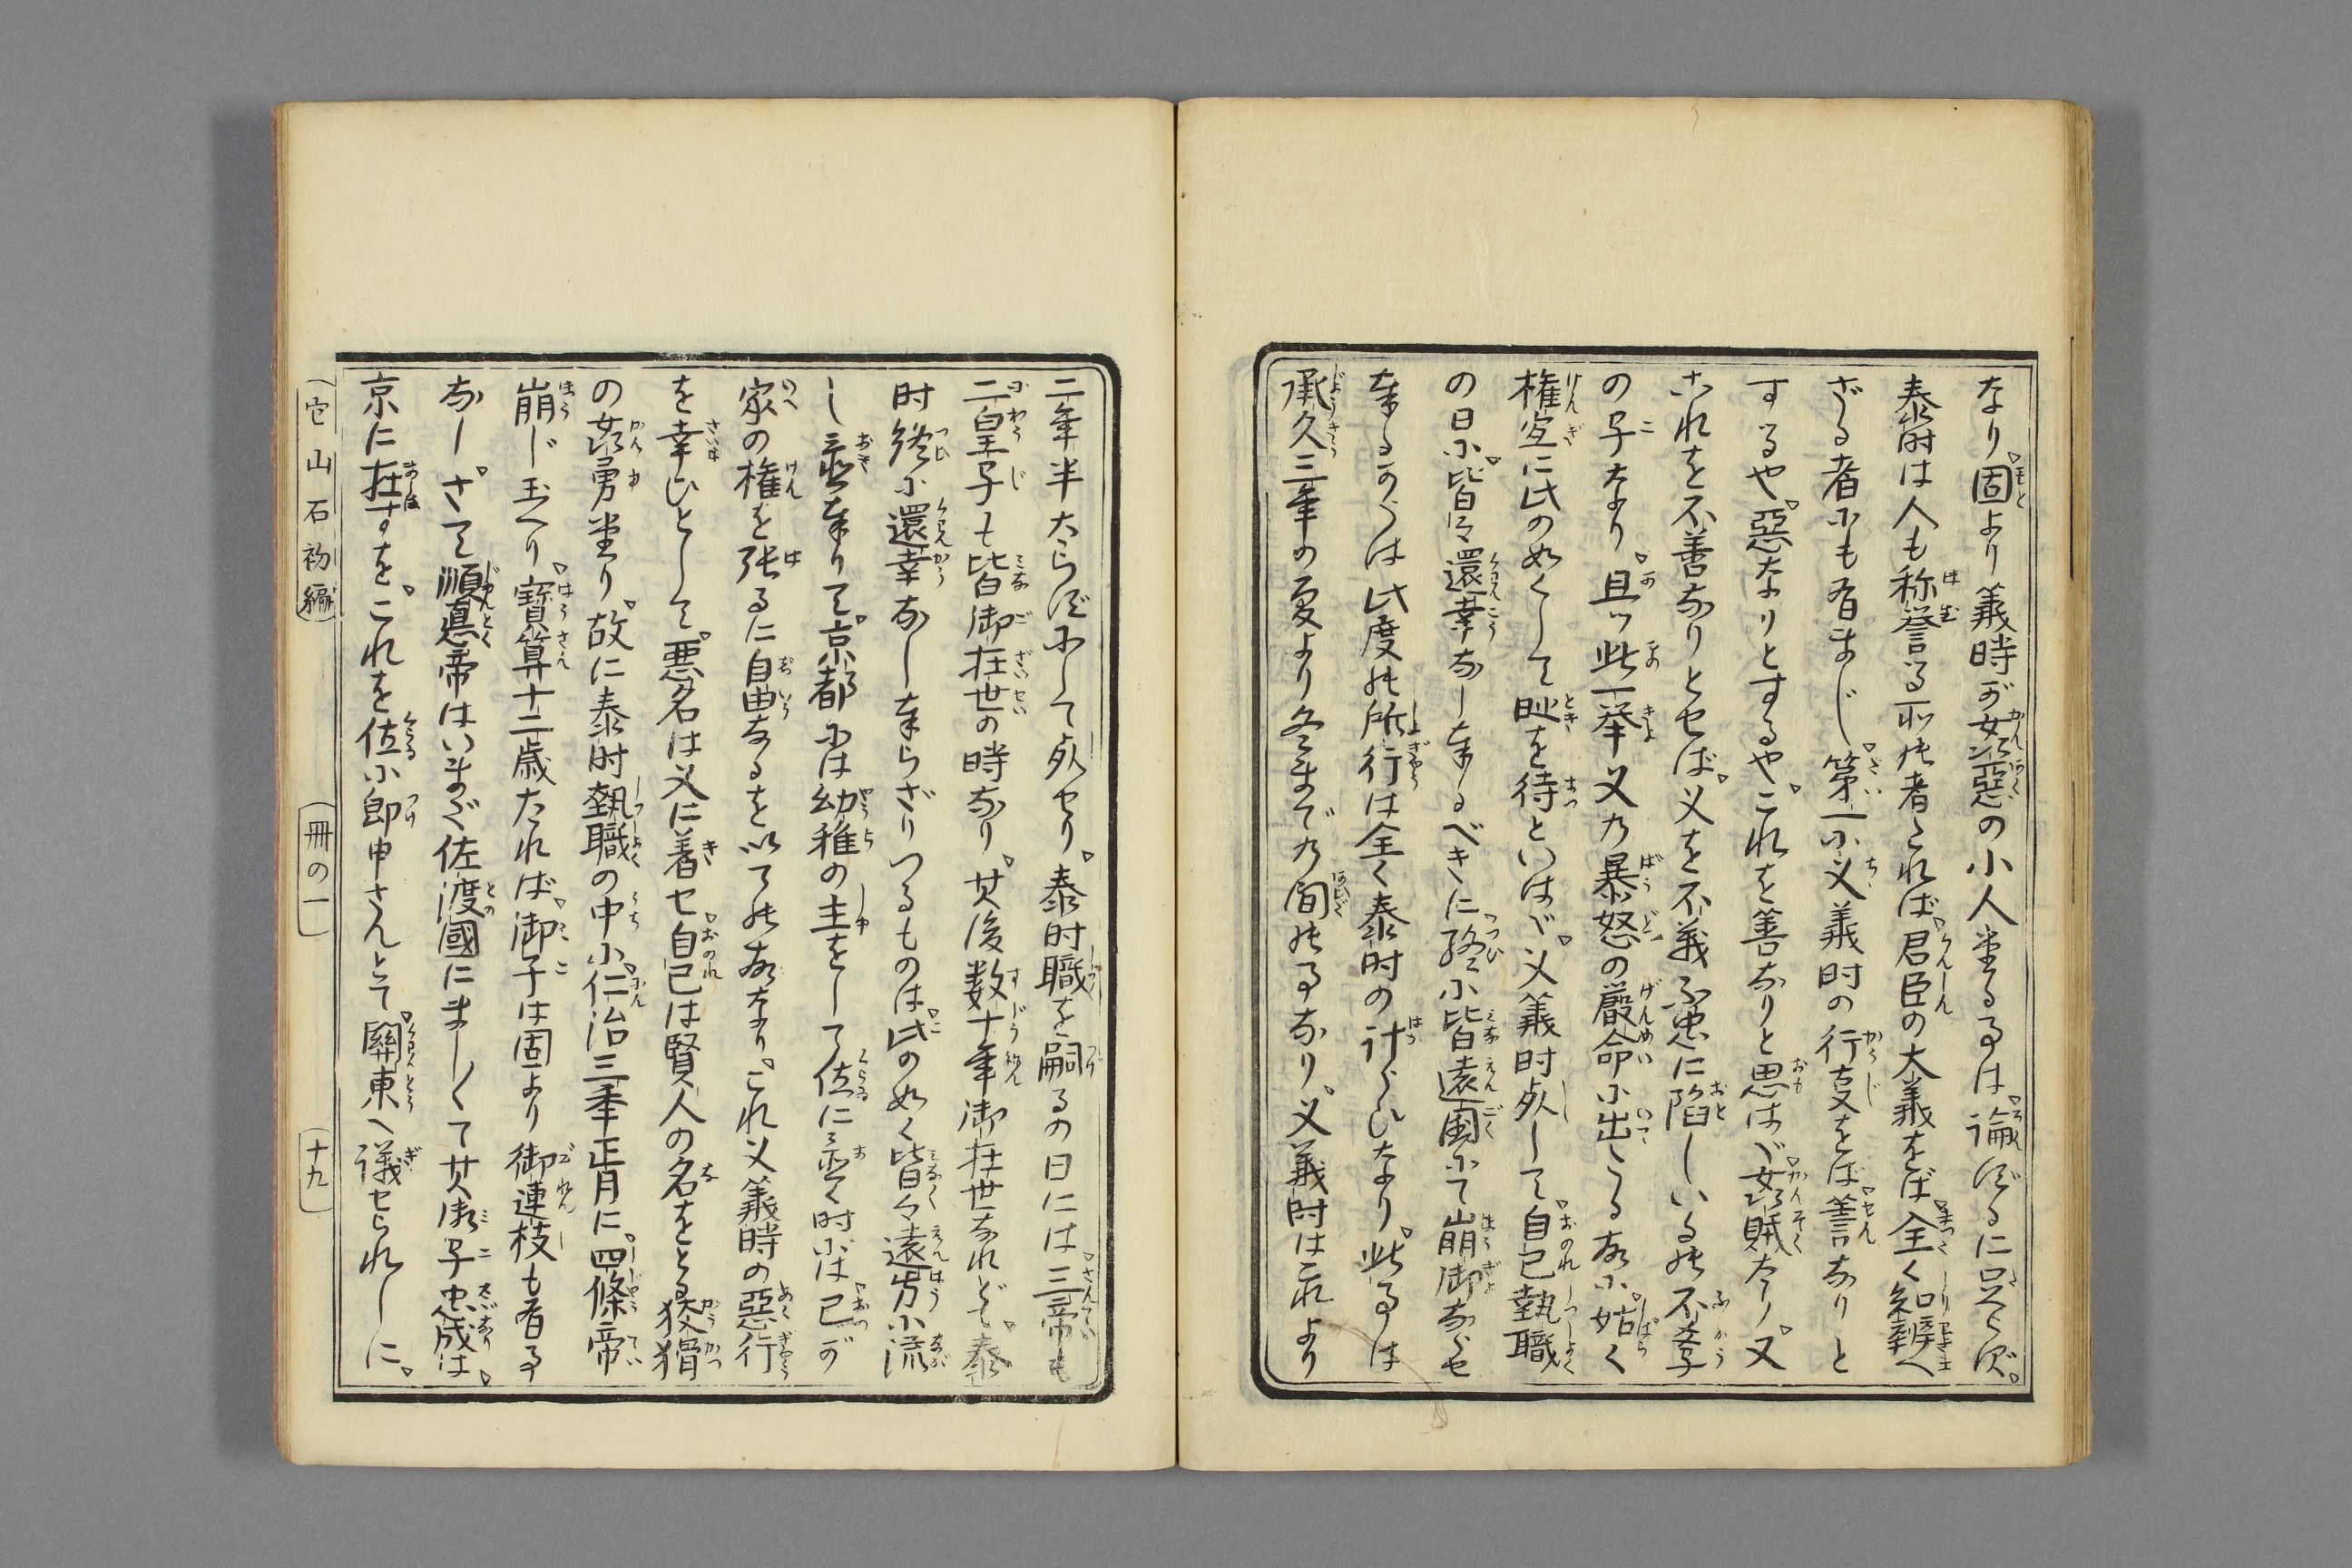 なり。固より義時が姦惡の小人なる事は。論ずるに足らず。
泰時は人も称誉る所の者これば。君臣の大義をば全く知辨へ
ざる者にも有まじ。第一に父義时の行事をば。善なりと
するや。惡なりとするや。これを善なりと思はゞ姦賊なり。又
これを不善なりとせば。父を不義不忠に陥しいるの不孝
の子なり。且ツ此一挙父の暴怒の嚴命に出たる故に。姑く
権宜に此の如くして時を待といはゞ。父義时死して。自己執職
の日に。皆々還幸なし奉るべきに。終に皆遠國にて崩御なくせ
奉るからは此度の所行は全く泰时の計らひなり。此事は
承久三年の夏より冬までの間の事なり。父義时はこれより
二年半たらずにして死せり。泰时職を嗣るの日には。三帝も
二皇子も皆御在世の時なり。其後数十年御在世なれども。泰
时終に還幸なし奉らざりつるものは。此の如く皆々遠方に流
し置奉りて。京都には幼稚の主をして位に置く时には。己が
家の権を張るに自由なるを以ての故なり。これ父義時の惡行
を幸ひとして。悪名は父に着セ。自己は賢人の名をとる狡猾
の姦勇なり。故に泰时執職の中に。仁治三年正月に。四條帝
崩じ玉へり。寳算十二歳たれば。御子は固より御連枝も有る事
なし。さて順悳帝はいまだ佐渡國にましくて其御子忠成は。
京に在すを。これを位に即申さんとて。關東へ議せられしに。
壱山石初編
冊の一
十九